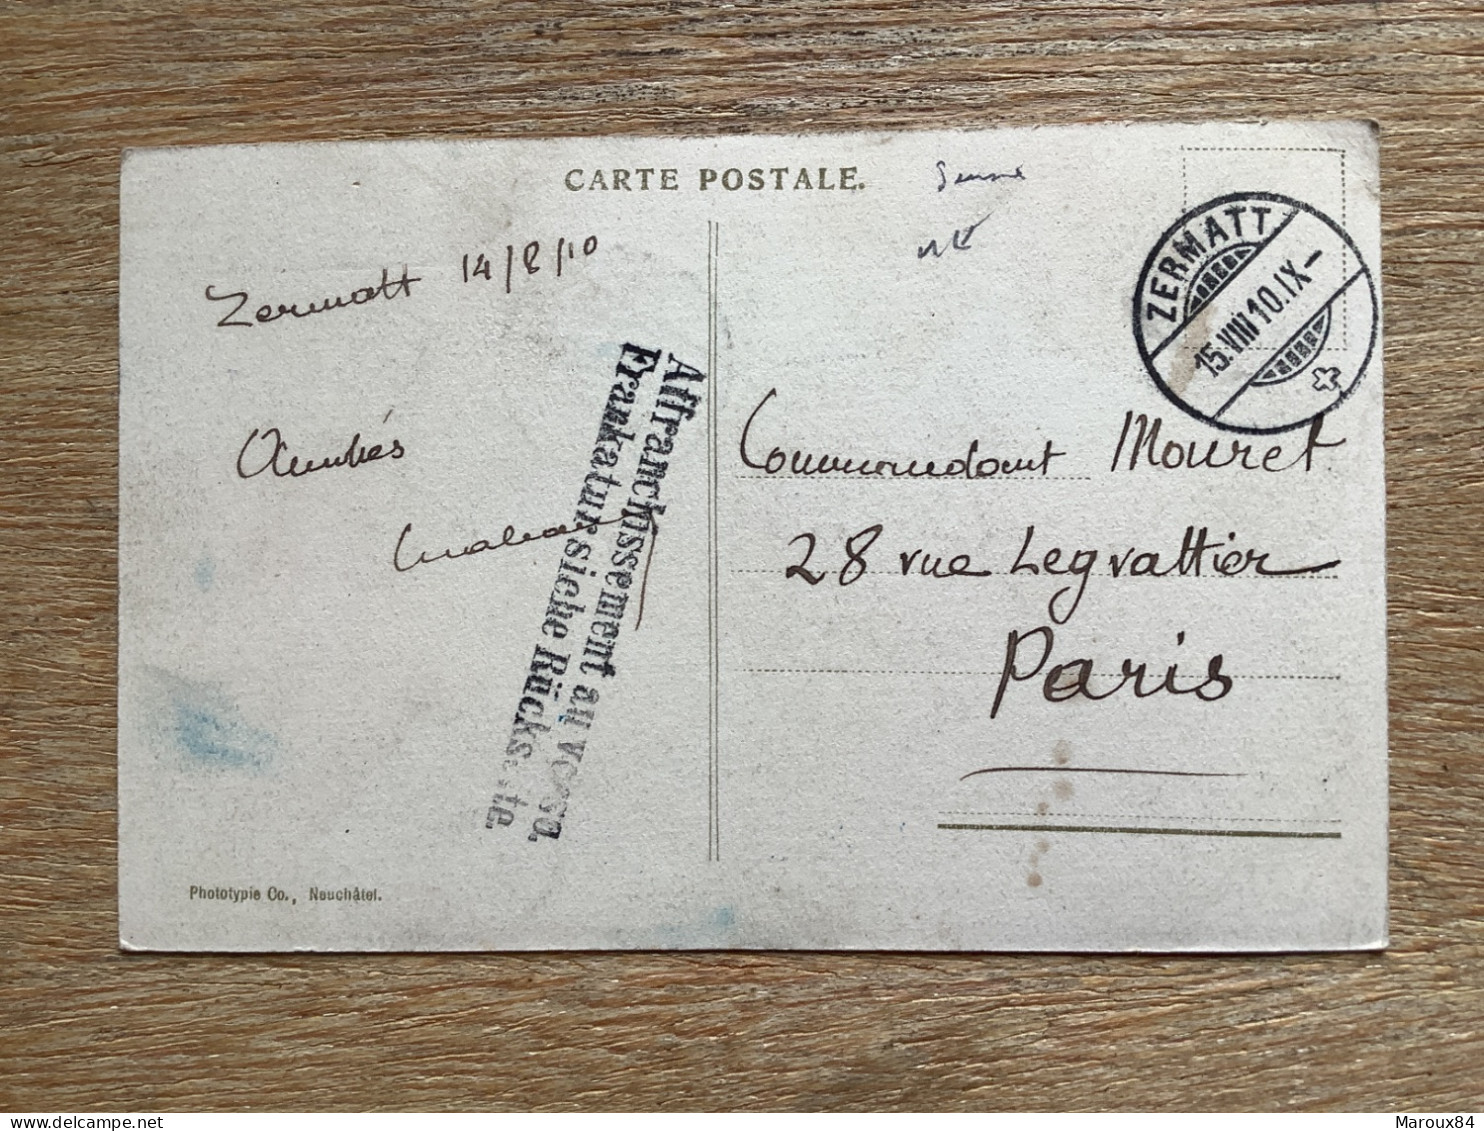 CARTE POSTALE.
Zermatt 14/8/10
Amitiés
Affranchissement au verso.
Frankatur siehe Rückseite.
ZERMATT
15.VIII 10.IX-
Commandant Mouret
28 rue Legrattier
Paris
Phototypie Co., Neuchâtel.
Maroux84